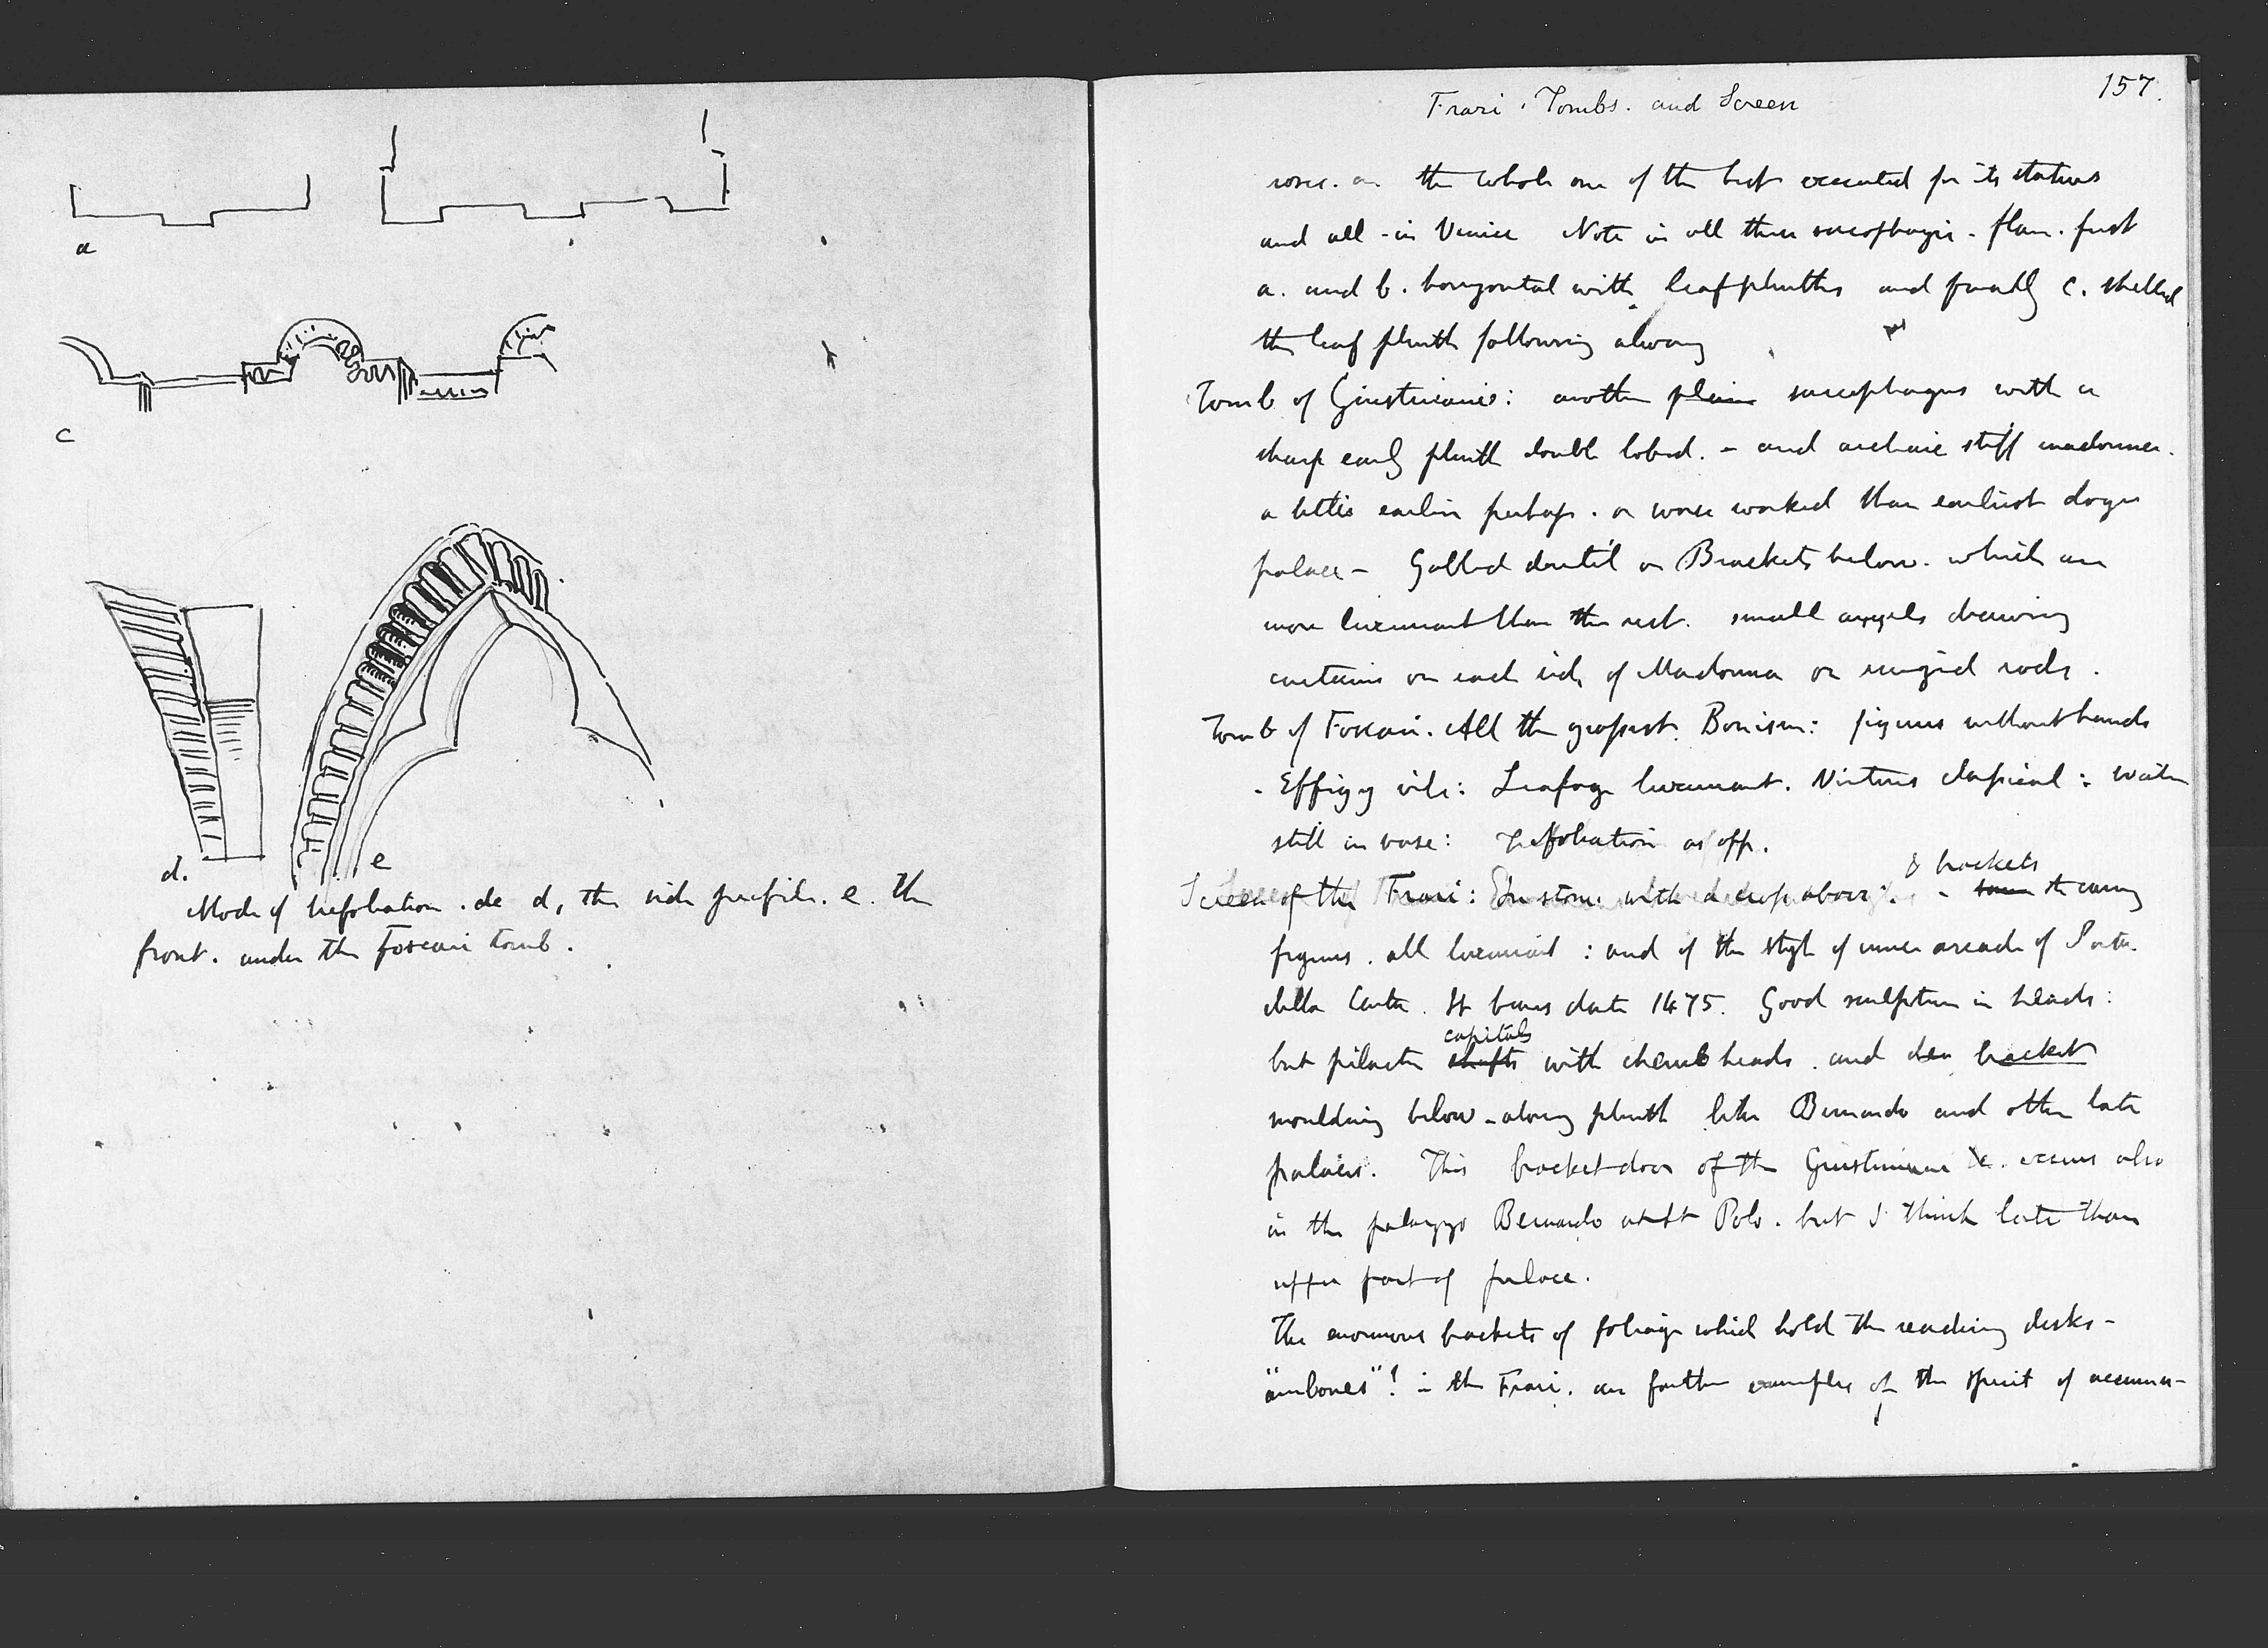 a
c
d.
e
Mode of trefoliation . de d, the side profile. e. the
front. under the Foscari tomb.
157.
Frari . Tombs. and Screen
roses. on the whole one of the best executed for its statues
and all - in Venice Note in all these sarcophagi - plan. first
a. and b. horizontal with leafplinths and finally c. shelled
the leaf plinth following always
Tomb of Giustiniani: another plain sarcophagus with a
sharp early plinth double lobed. - and archaic stiff madonna.
a little earlier perhaps. or worse worked than earliest doges
palace - Gabled dentil on Brackets below. which are
more luxuriant than the rest. small angels drawing
curtains on each side of Madonna on rods.
Tomb of Foscari. All the grossest. figures without hands
- Effigy vile: Leafage luxuriant. Virtues classical: water
still in vase: Trefoliation as opp.
Screen of the Frari: In stone with a cross above: - & brackets carrying
figures. all luxuriant: and of the style of inner arcade of Porta
della Carta. It bears date 1475. Good sculpture in heads:
but pilaster shafts capitals with cherub heads. and bracket
moulding below - along plinth like Bernardo and other late
palaces. This bracket door of the Giustiniani &c. occurs also
in the palazzo Bernardo at St Polo. but I think later than
upper part of palace.
The enormous brackets of foliage which hold the reading desks -
"ambones"! in the Frari. are further examples of the spirit of accumu-